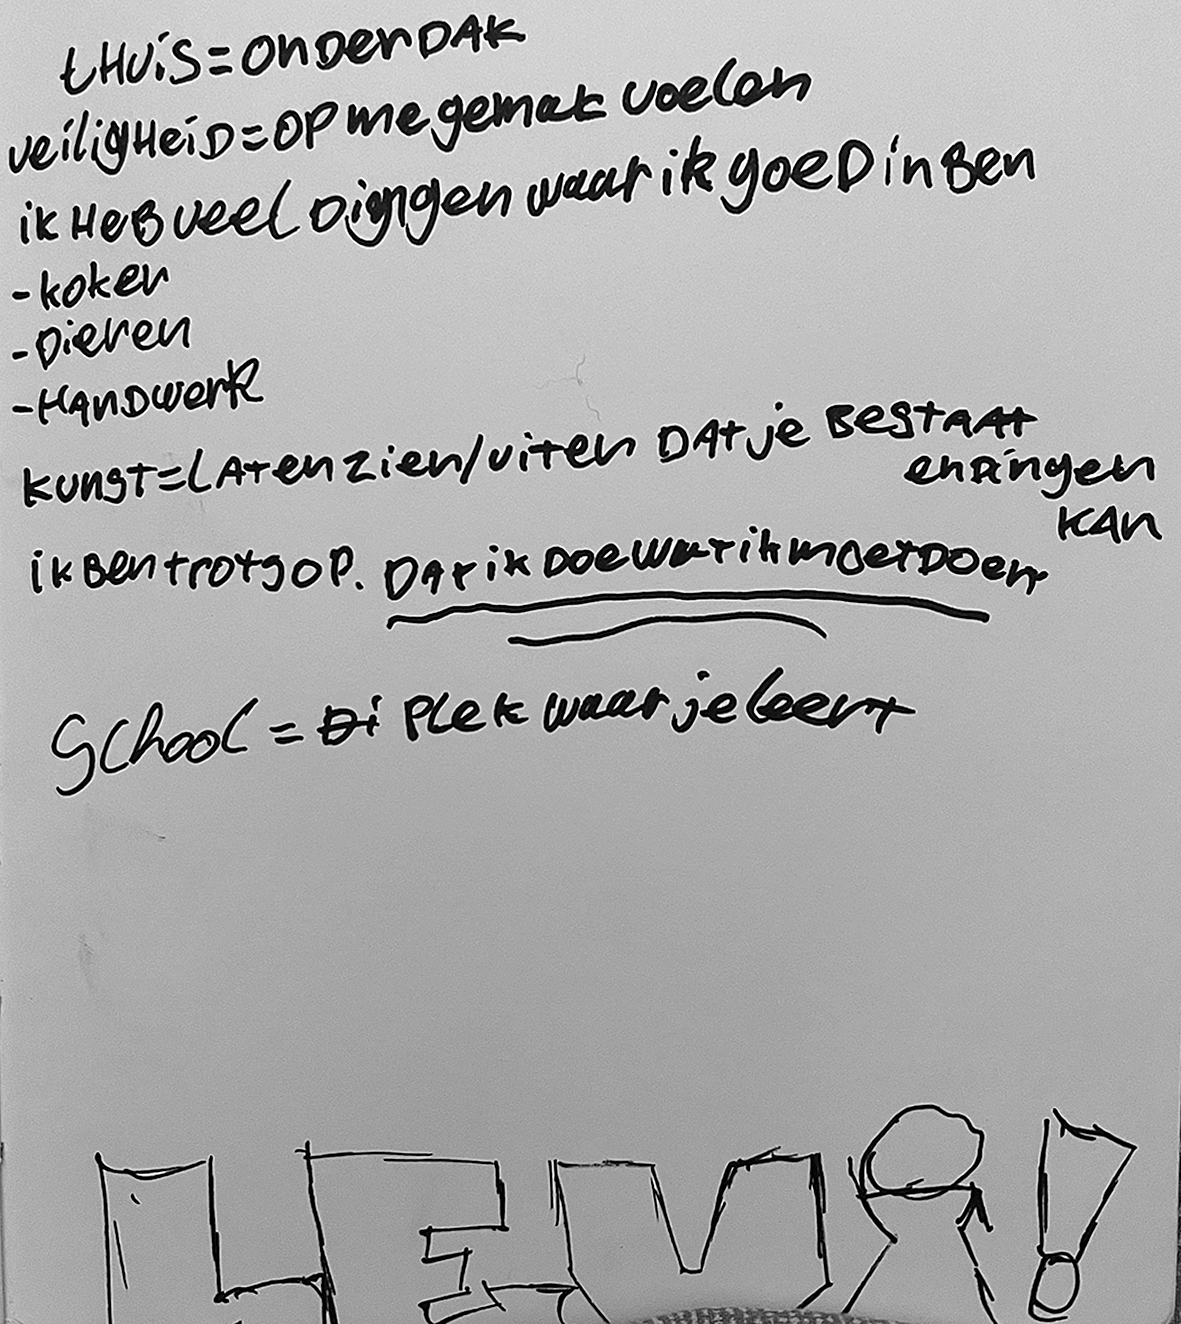 tHUiS=OnDerDAK
veiligHeiD=OP me gemak voelen
ik HeB veel Dingen waar ik goeD in Ben
-koken
-Dieren
-HAnDwerk
kunst=LAten zien/uiten DAt je BestAAt
en Dingen
KAn
ik Ben trots op. DAt ik Doe wat ik moet Doen
School = Di Plek waar je leert